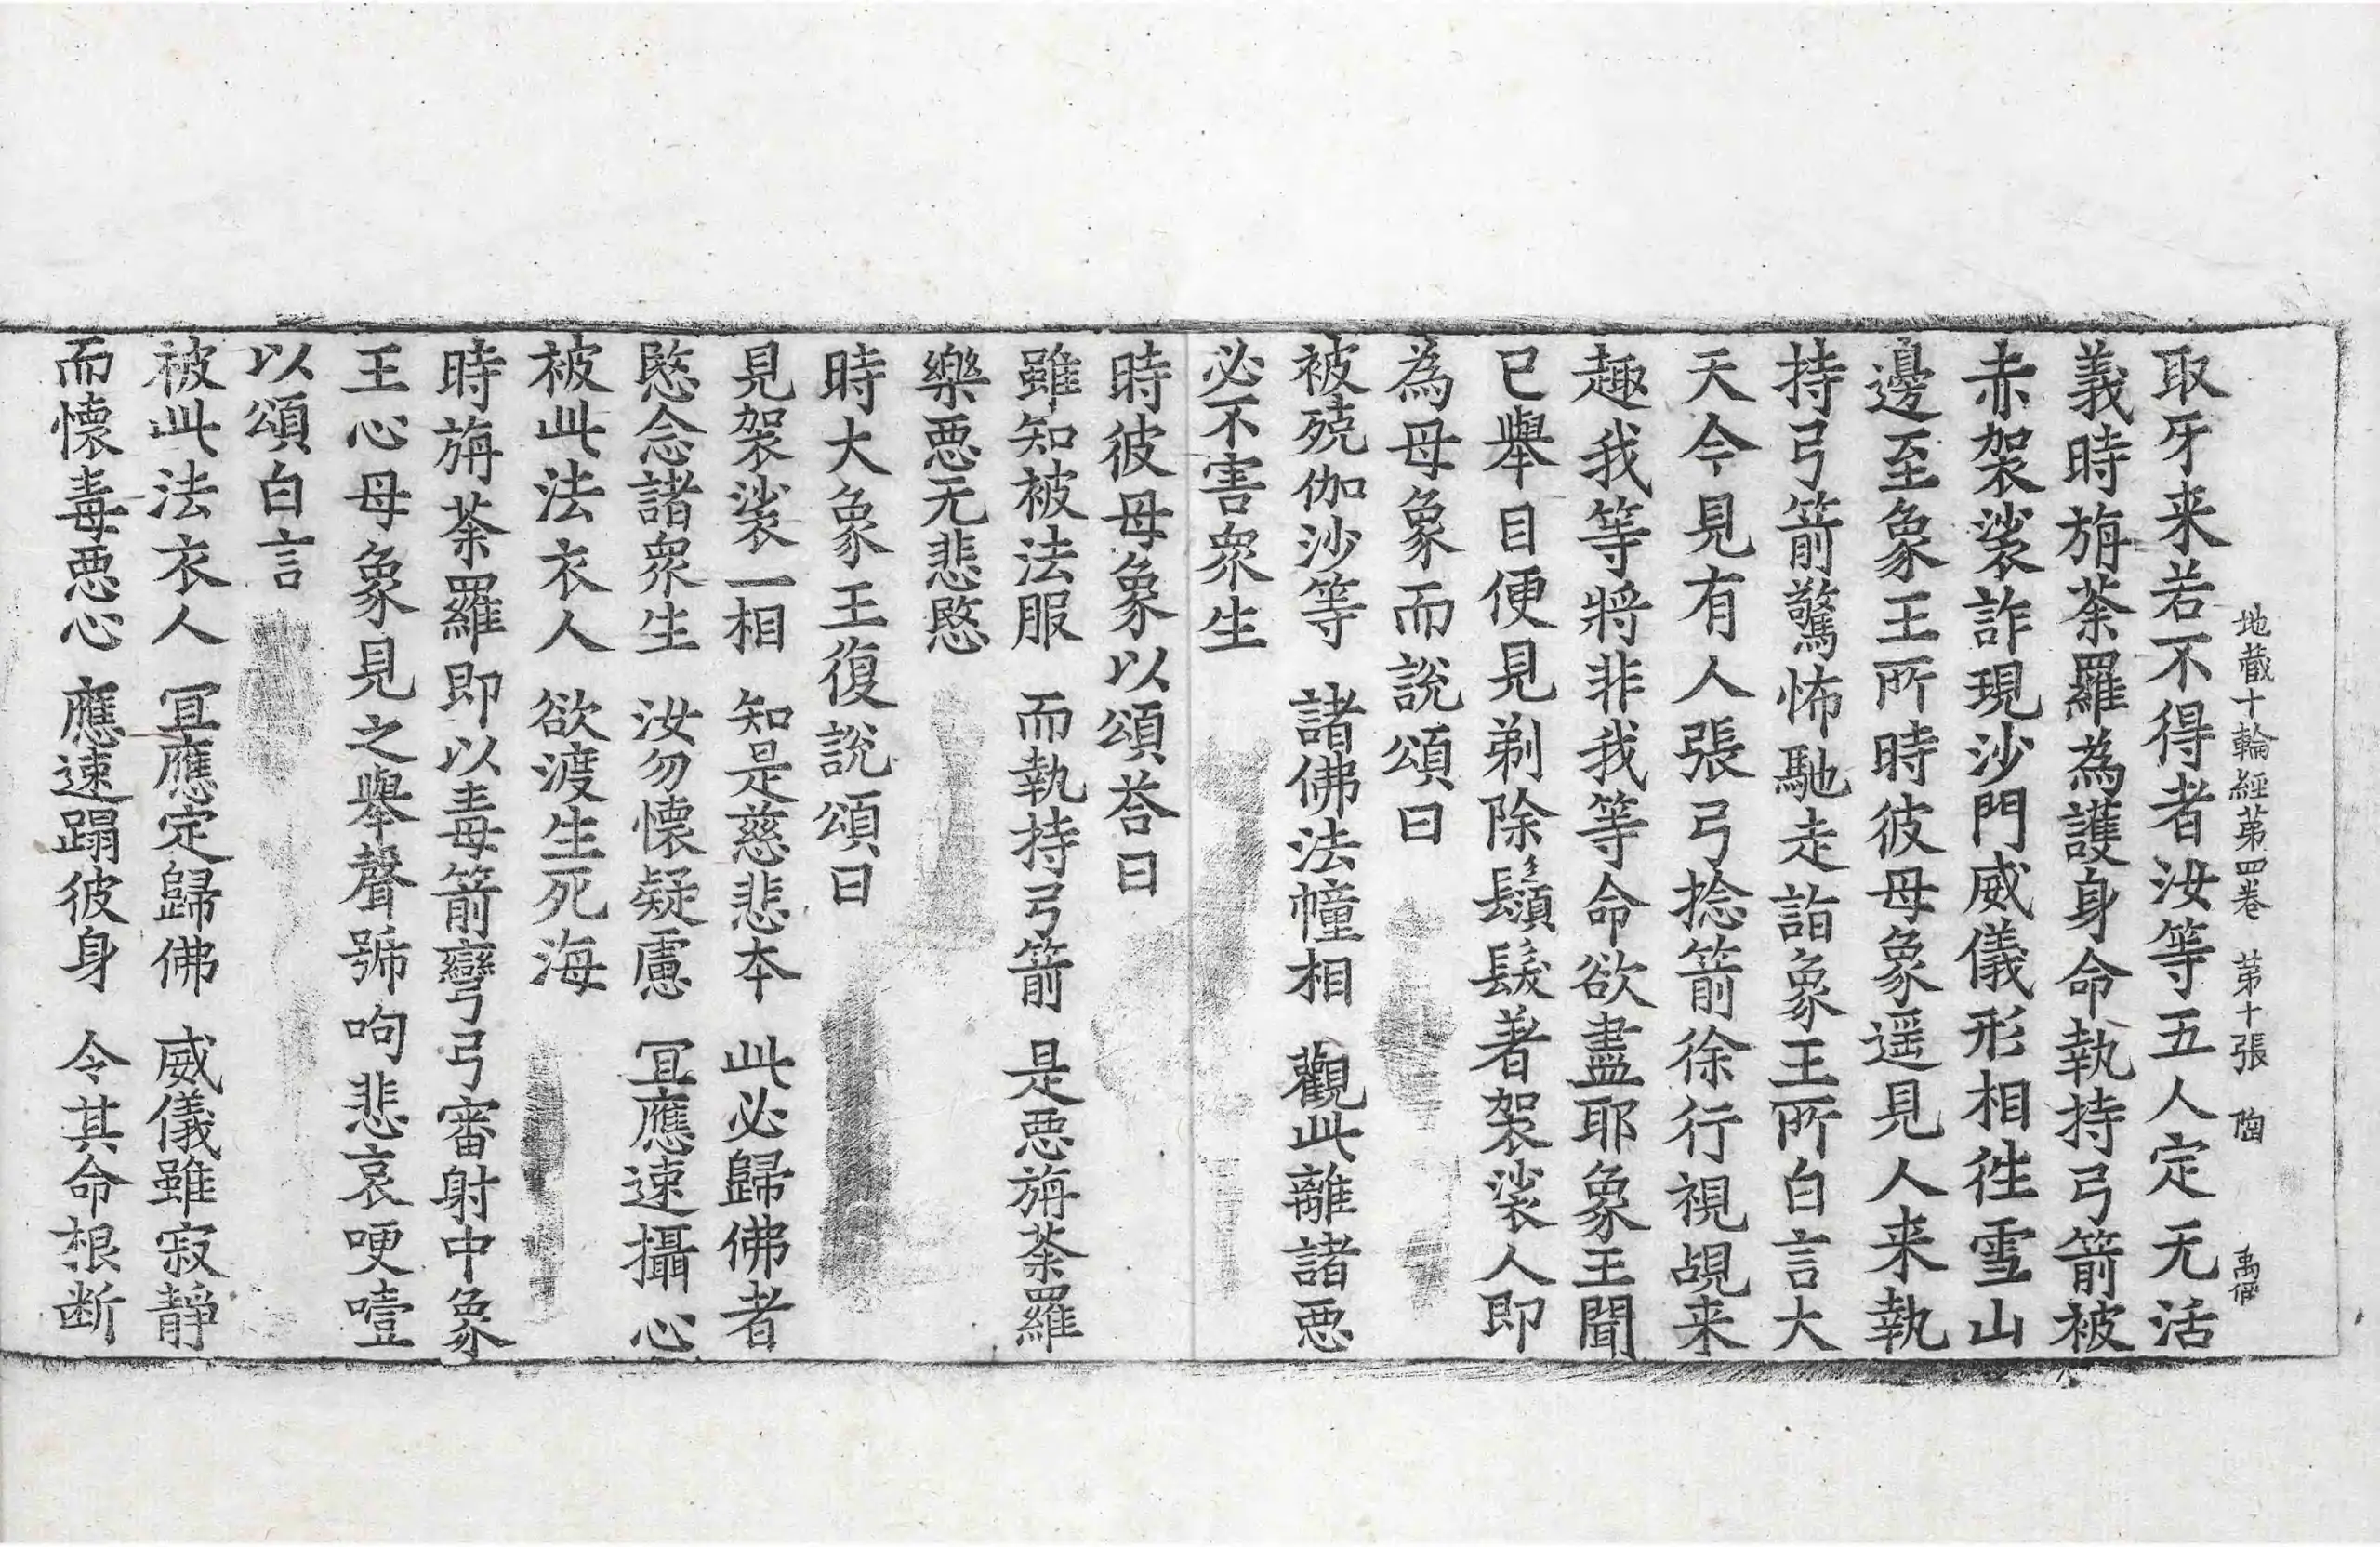 地藏十輪經第四卷　第十張　陶　禹俌
取牙来若不得者汝等五人定无活
義時旃荼羅為護身命執持弓箭被
赤袈裟詐現沙門威儀形相徃雪山
邊至象王所時彼母象遥見人来執
持弓箭驚怖馳走詣象王所白言大
天今見有人張弓捻箭徐行視覘来
趣我等將非我等命欲盡耶象王聞
已舉目便見剃除鬚髮著袈裟人即
為母象而說頌曰
被殑伽沙等　諸佛法幢相　觀此離諸惡
必不害衆生
時彼母象以頌荅曰
雖知被法服　而執持弓箭　是惡旃荼羅
樂惡无悲愍
時大象王復說頌曰
見袈裟一相　知是慈悲本　此必歸佛者
愍念諸衆生　汝勿懷疑慮　冝應速攝心
被此法衣人　欲渡生死海
時旃荼羅即以毒箭彎弓審射中象
王心母象見之舉聲號咷悲哀哽噎
以頌白言
被此法衣人　冝應定歸佛　威儀雖寂靜
而懷毒惡心　應速蹋彼身　令其命根断